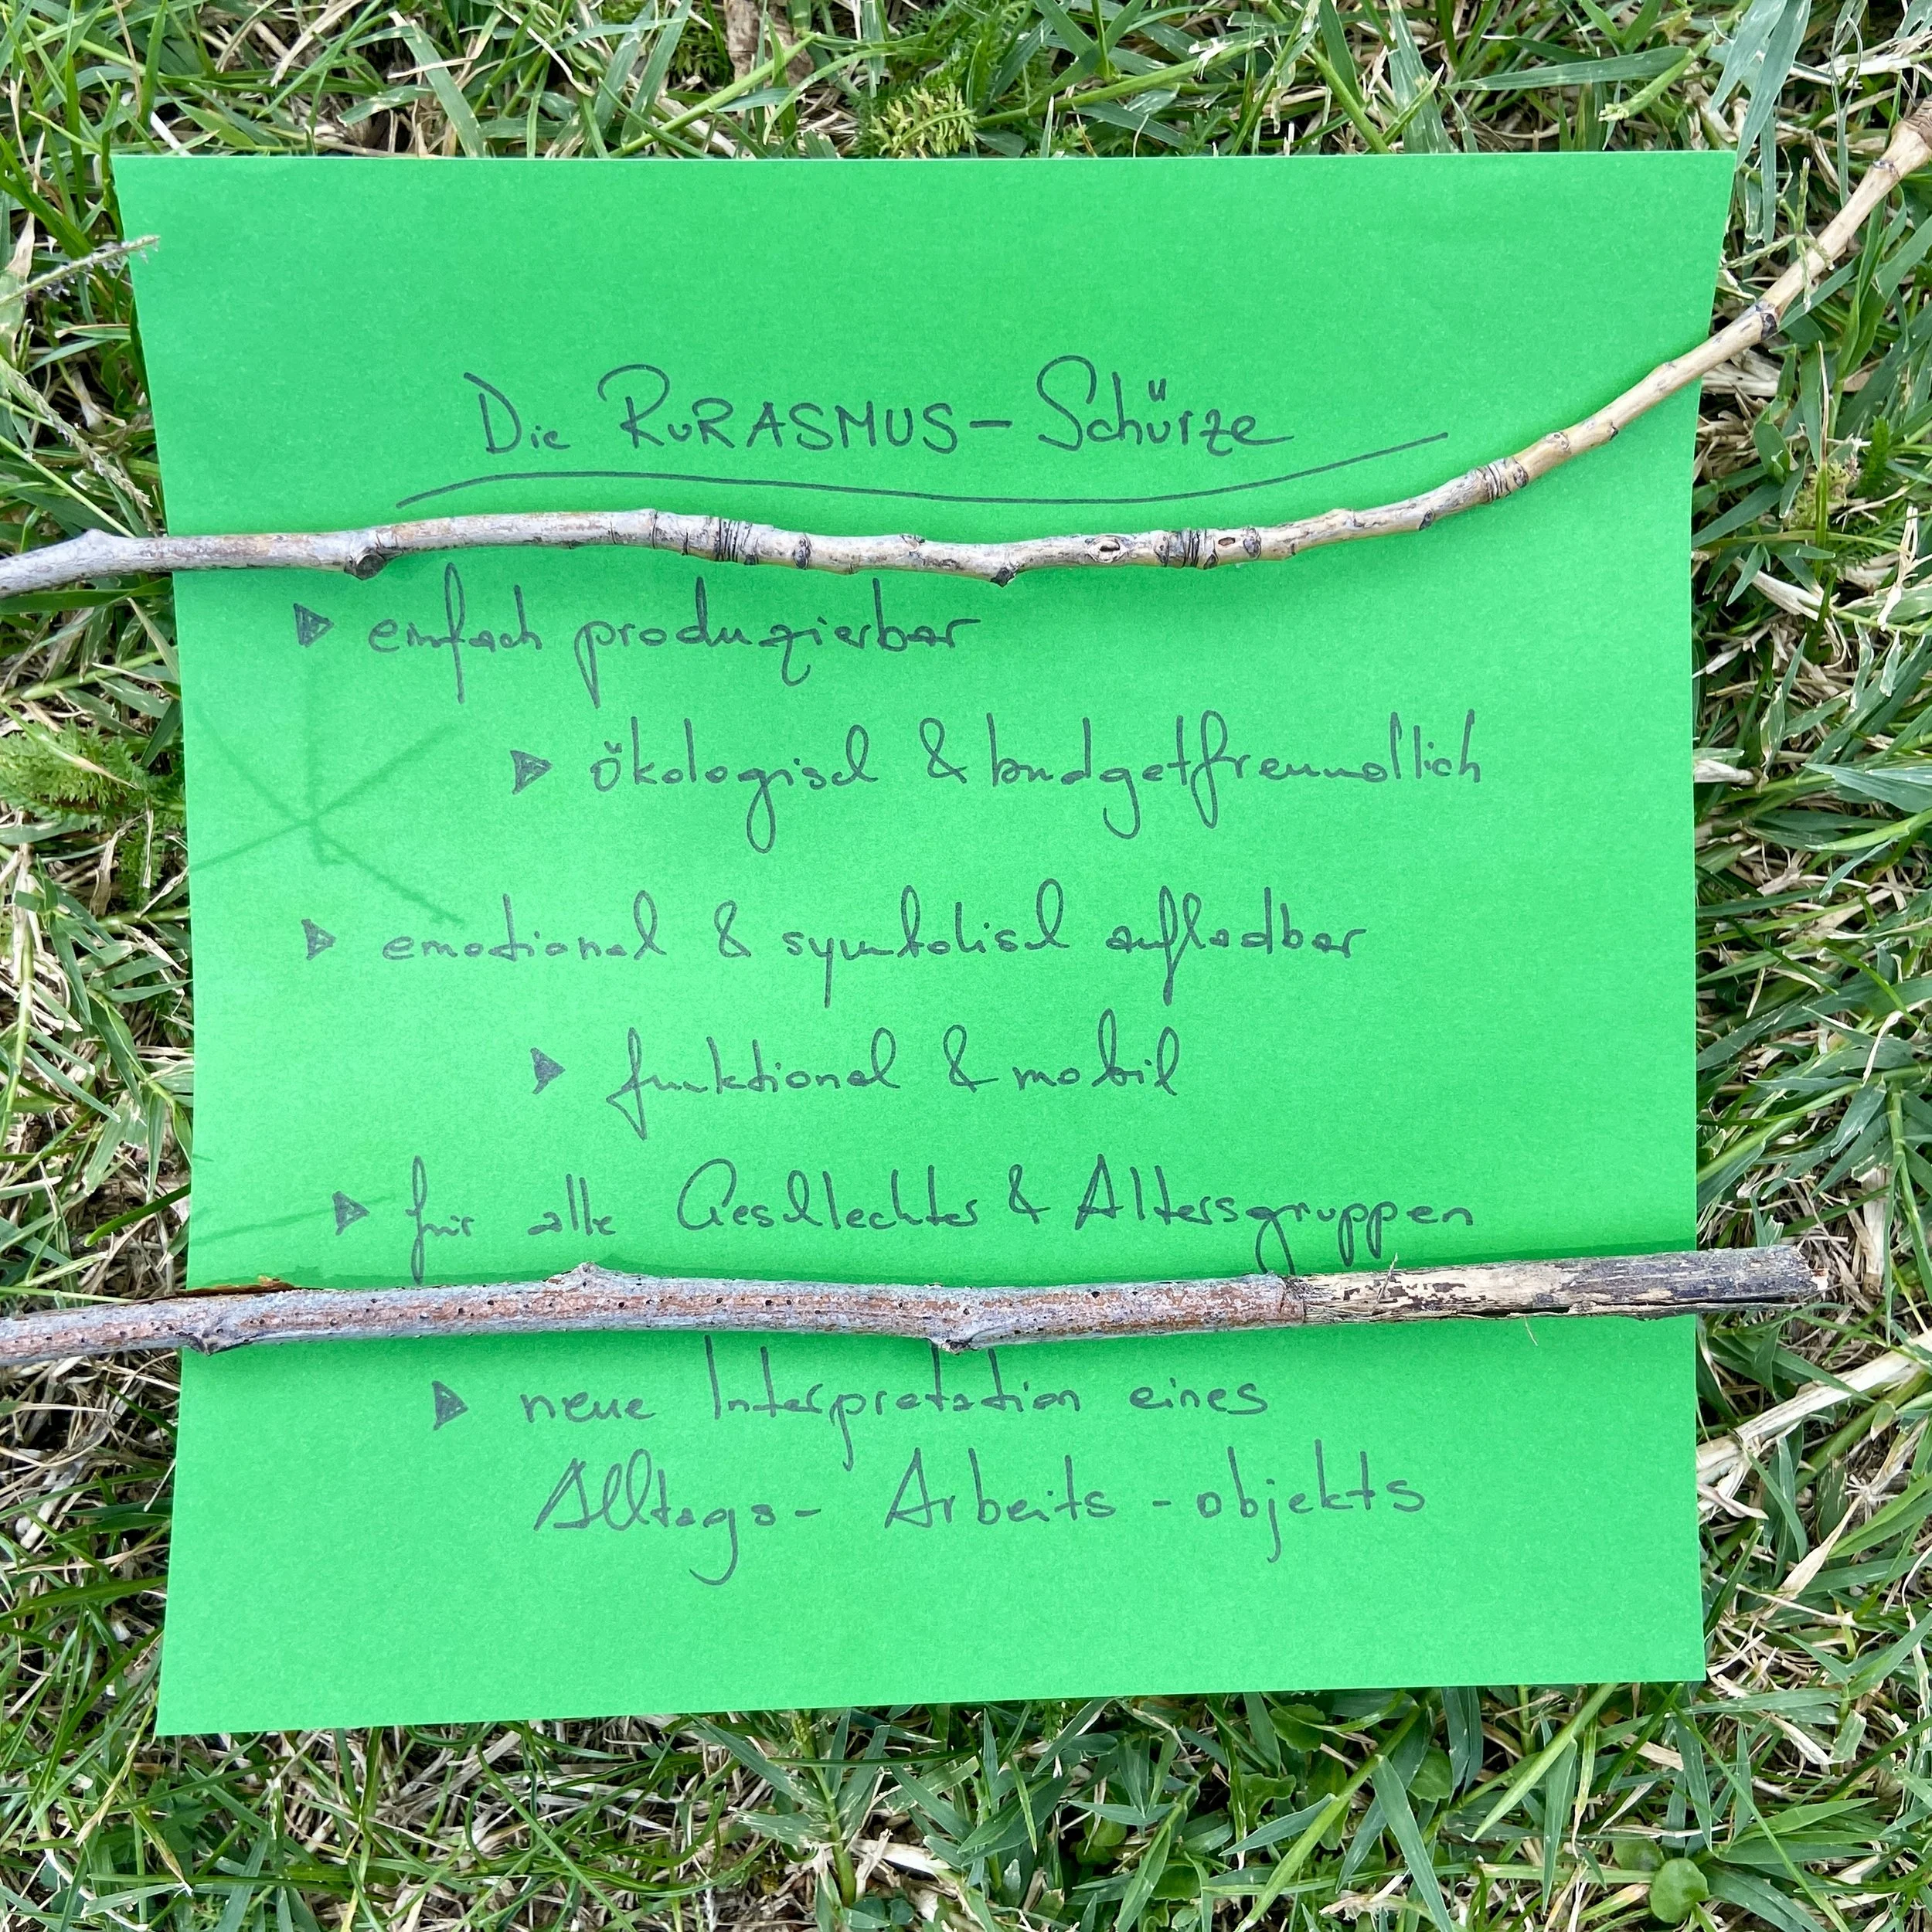 Die RURASMUS-Schürze
▶ einfach produzierbar
▶ ökologisch & budgetfreundlich
▶ emotional & symbolisch aufladbar
▶ funktional & mobil
▶ für alle Geschlechter & Altersgruppen
▶ neue Interpretation eines
Alltags- Arbeits-objekts